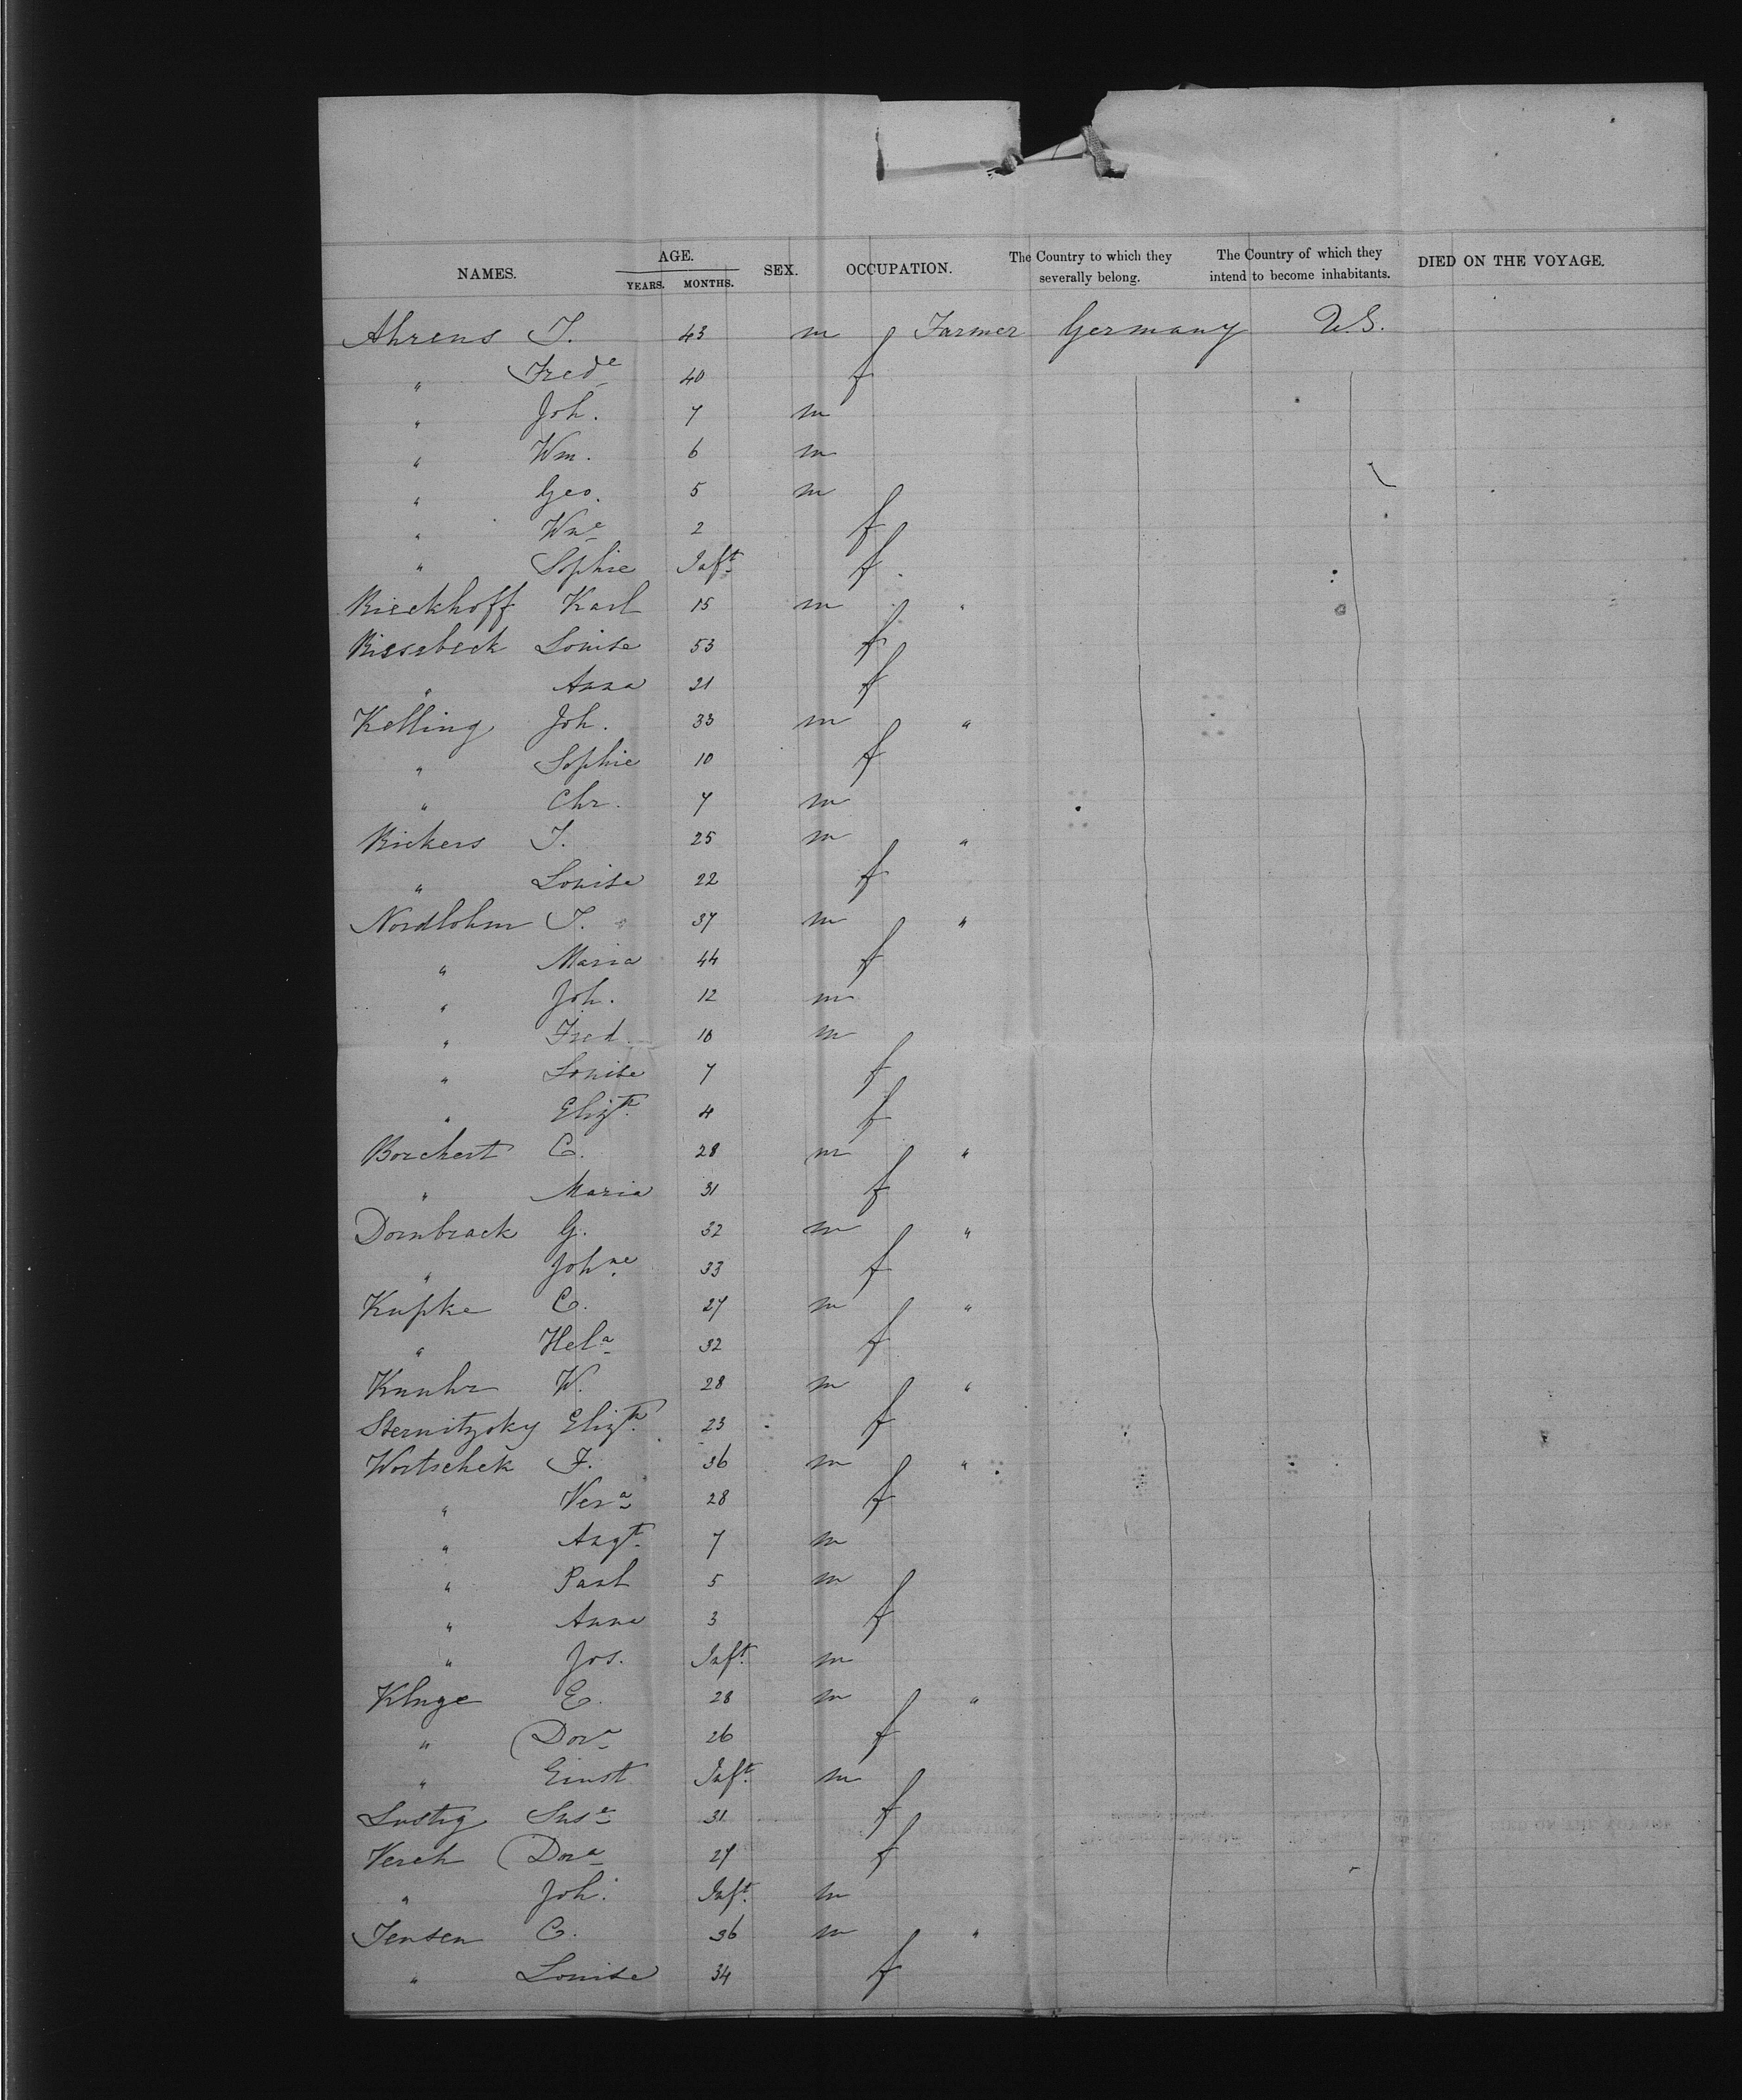 NAMES. AGE. YEARS. MONTHS. SEX. OCCUPATION. The Country to which they severally belong. The Country of which they intend to become inhabitants. DIED ON THE VOYAGE.
Ahrens J. 43 m Farmer Germany U.S.
" Frede 40 f
" Joh. 7 m
" Wm. 6 m
" Geo. 5 m
" Wne 2 f
" Sophie Inft. f
Rieckhoff Karl 15 m "
Louise 53 f
" Anna 21 f
Kelling Joh. 33 m "
" Sophie 10 f
" Chr. 7 m
Rickers J. 25 m "
" Louise 22 f
Nordlohm J. 37 m "
" Maria 44 f
" Joh. 12 m
" Fred. 10 m
" Louise 7 f
" Elizth 4 f
Borchert C. 28 m "
" Maria 31 f
Dornbrack G. 32 m "
" Johne 33 f
Kupke C. 27 m "
" Hela 32 f
W. 28 m "
Sternitzky Elizth 23 f
Wortschek F. 36 m "
" Vera 28 f
" Augt. 7 m
" Paul 5 m
" Anna 3 f
" Jos. Inft. m
Kluge E. 28 m "
" Dora 26 f
" Ernst Inft. m
Lustig Suse 31 f
Verch Dora 27 f
" Joh. Inft. m
Jensen C. 36 m "
" Louise 34 f